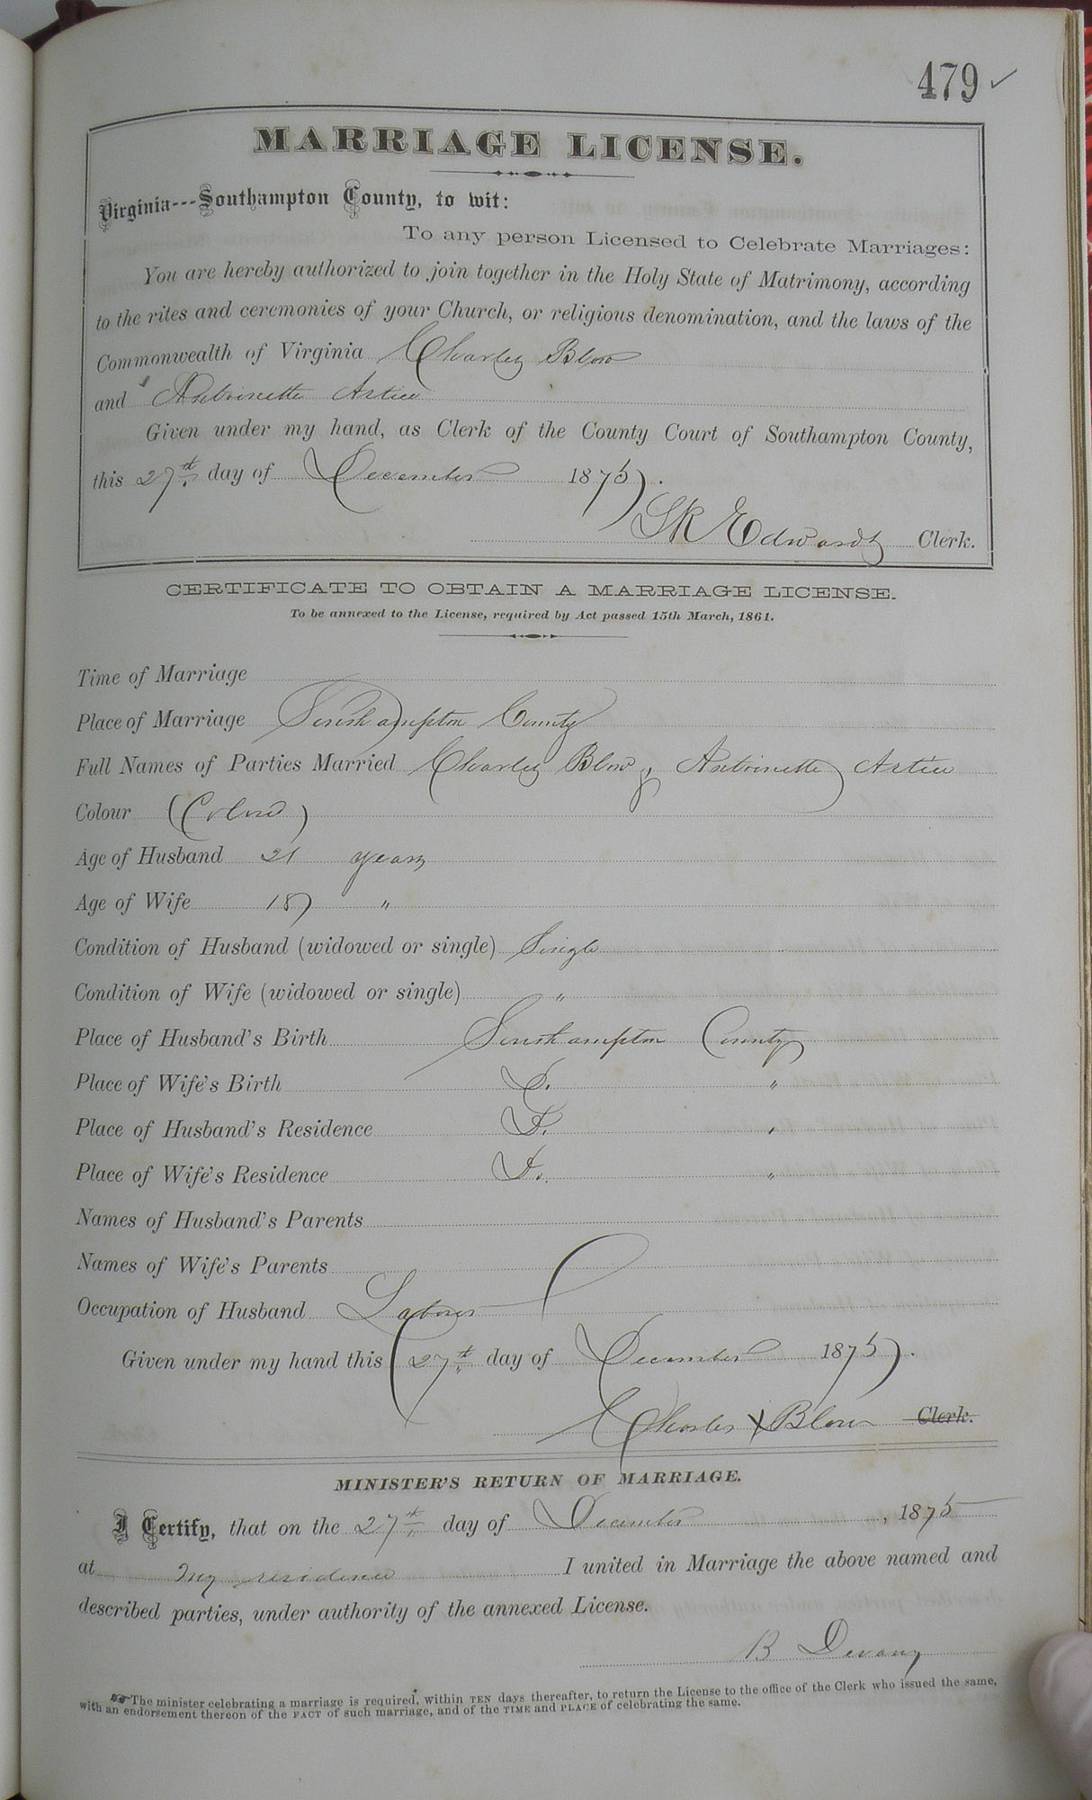 479 ✓
MARRIAGE LICENSE.
Virginia---Southampton County, to wit:
To any person Licensed to Celebrate Marriages:
You are hereby authorized to join together in the Holy State of Matrimony, according
to the rites and ceremonies of your Church, or religious denomination, and the laws of the
Commonwealth of Virginia Charley Blow
and Antoinette Artiee
Given under my hand, as Clerk of the County Court of Southampton County,
this 27th day of December 1875.
L R Edwards Clerk.
CERTIFICATE TO OBTAIN A MARRIAGE LICENSE.
To be annexed to the License, required by Act passed 15th March, 1861.
Time of Marriage
Place of Marriage Southampton County
Full Names of Parties Married Charley Blow & Antoinette Artiee
Colour (Colord)
Age of Husband 21 years
Age of Wife 18 "
Condition of Husband (widowed or single) Single
Condition of Wife (widowed or single) "
Place of Husband's Birth Southampton County
Place of Wife's Birth D. "
Place of Husband's Residence D. "
Place of Wife's Residence D. "
Names of Husband's Parents
Names of Wife's Parents
Occupation of Husband Laborer
Given under my hand this 27th day of December 1875.
Charles X Blow Clerk.
MINISTER'S RETURN OF MARRIAGE.
I Certify, that on the 27th day of December, 1875
at my residence I united in Marriage the above named and
described parties, under authority of the annexed License.
B Devany
The minister celebrating a marriage is required, within TEN days thereafter, to return the License to the office of the Clerk who issued the same,
with an endorsement thereon of the FACT of such marriage, and of the TIME and PLACE of celebrating the same.